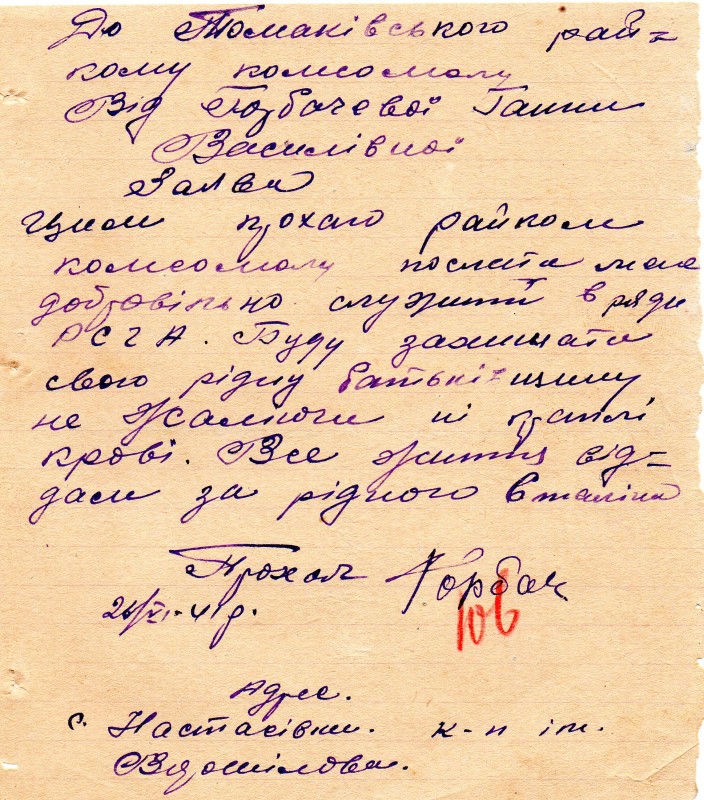 До Томаківського рай=
кому комсомолу
Від Горбачевої Ганни
Василівної
Заява
Цим прохаю райком
комсомолу послати мене
добровільно служити в ряди
РСЧА. Буду захищати
свою рідну батькі=щину
не жаліючи ні краплі
крові. Все життя від=
дам за рідного Сталіна
Прохач Горбач
/VI-41 р.
106
Адрес.
с. Настасівки. к-п ім.
Ворошілова.